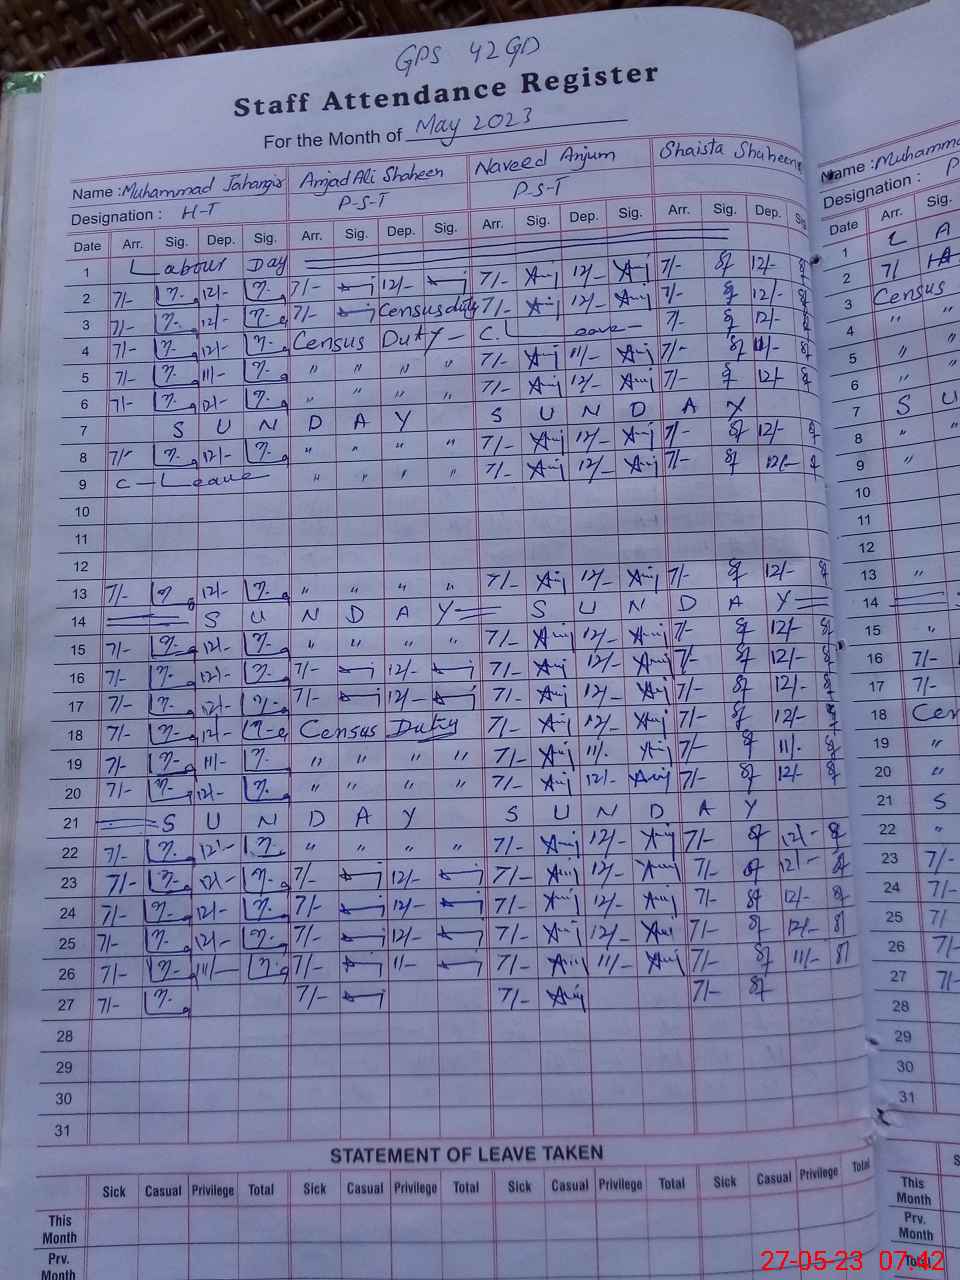 GPS 42GD
Staff Attendance Register
For the Month of May 2023
Name : Muhammad Jahangir Amjad Ali Shaheen Naveed Anjum Shaista Shaheen
Designation : H-T P-S-T P-S-T
Date Arr. Sig. Dep. Sig. Arr. Sig. Dep. Sig. Arr. Sig. Dep. Sig. Arr. Sig. Dep. Sig
1 Labour Day
2 7/- 12/- 7/- 12/- 7/- 12/- 7/- 12/-
3 7/- 12/- 7/- Census duty 7/- 12/- 7/- 12/-
4 7/- 12/- Census Duty - C. Leave - 7/- 12/-
5 7/- 11/- " " " " 7/- 11/- 7/- 11/-
6 7/- 12/- " " " " 7/- 12/- 7/- 12/-
7 S U N D A Y S U N D A Y
8 7/- 12/- " " " " 7/- 12/- 7/- 12/-
9 C - Leave " " " " 7/- 12/- 7/- 12/-
10
11
12
13 7/- 12/- " " " " 7/- 12/- 7/- 12/-
14 S U N D A Y S U N D A Y
15 7/- 12/- " " " " 7/- 12/- 7/- 12/-
16 7/- 12/- 7/- 12/- 7/- 12/- 7/- 12/-
17 7/- 12/- 7/- 12/- 7/- 12/- 7/- 12/-
18 7/- 12/- Census Duty 7/- 12/- 7/- 12/-
19 7/- 11/- " " " " 7/- 11/. 7/- 11/.
20 7/- 12/- " " " " 7/- 12/- 7/- 12/-
21 S U N D A Y S U N D A Y
22 7/- 12/- " " " " 7/- 12/- 7/- 12/-
23 7/- 12/- 7/- 12/- 7/- 12/- 7/- 12/-
24 7/- 12/- 7/- 12/- 7/- 12/- 7/- 12/-
25 7/- 12/- 7/- 12/- 7/- 12/- 7/- 12/-
26 7/- 11/- 7/- 11/- 7/- 11/- 7/- 11/-
27 7/- 7/- 7/- 7/-
28
29
30
31
STATEMENT OF LEAVE TAKEN
Sick Casual Privilege Total Sick Casual Privilege Total Sick Casual Privilege Total Sick Casual Privilege Total
This Month
Prv. Month
Name : Muhamma
Designation : P
Date Arr. Sig.
1 L A
2 7/
3 Census
4 " "
5 " "
6 " "
7 S U
8 " "
9 "
10
11
12
13 "
14
15 "
16 7/-
17 7/-
18 Cen
19 "
20 "
21 S
22 "
23 7/-
24 7/-
25 7/
26 7/-
27 7/-
28
29
30
31
S
This Month
Prv. Month
Total
27-05-23 07:42